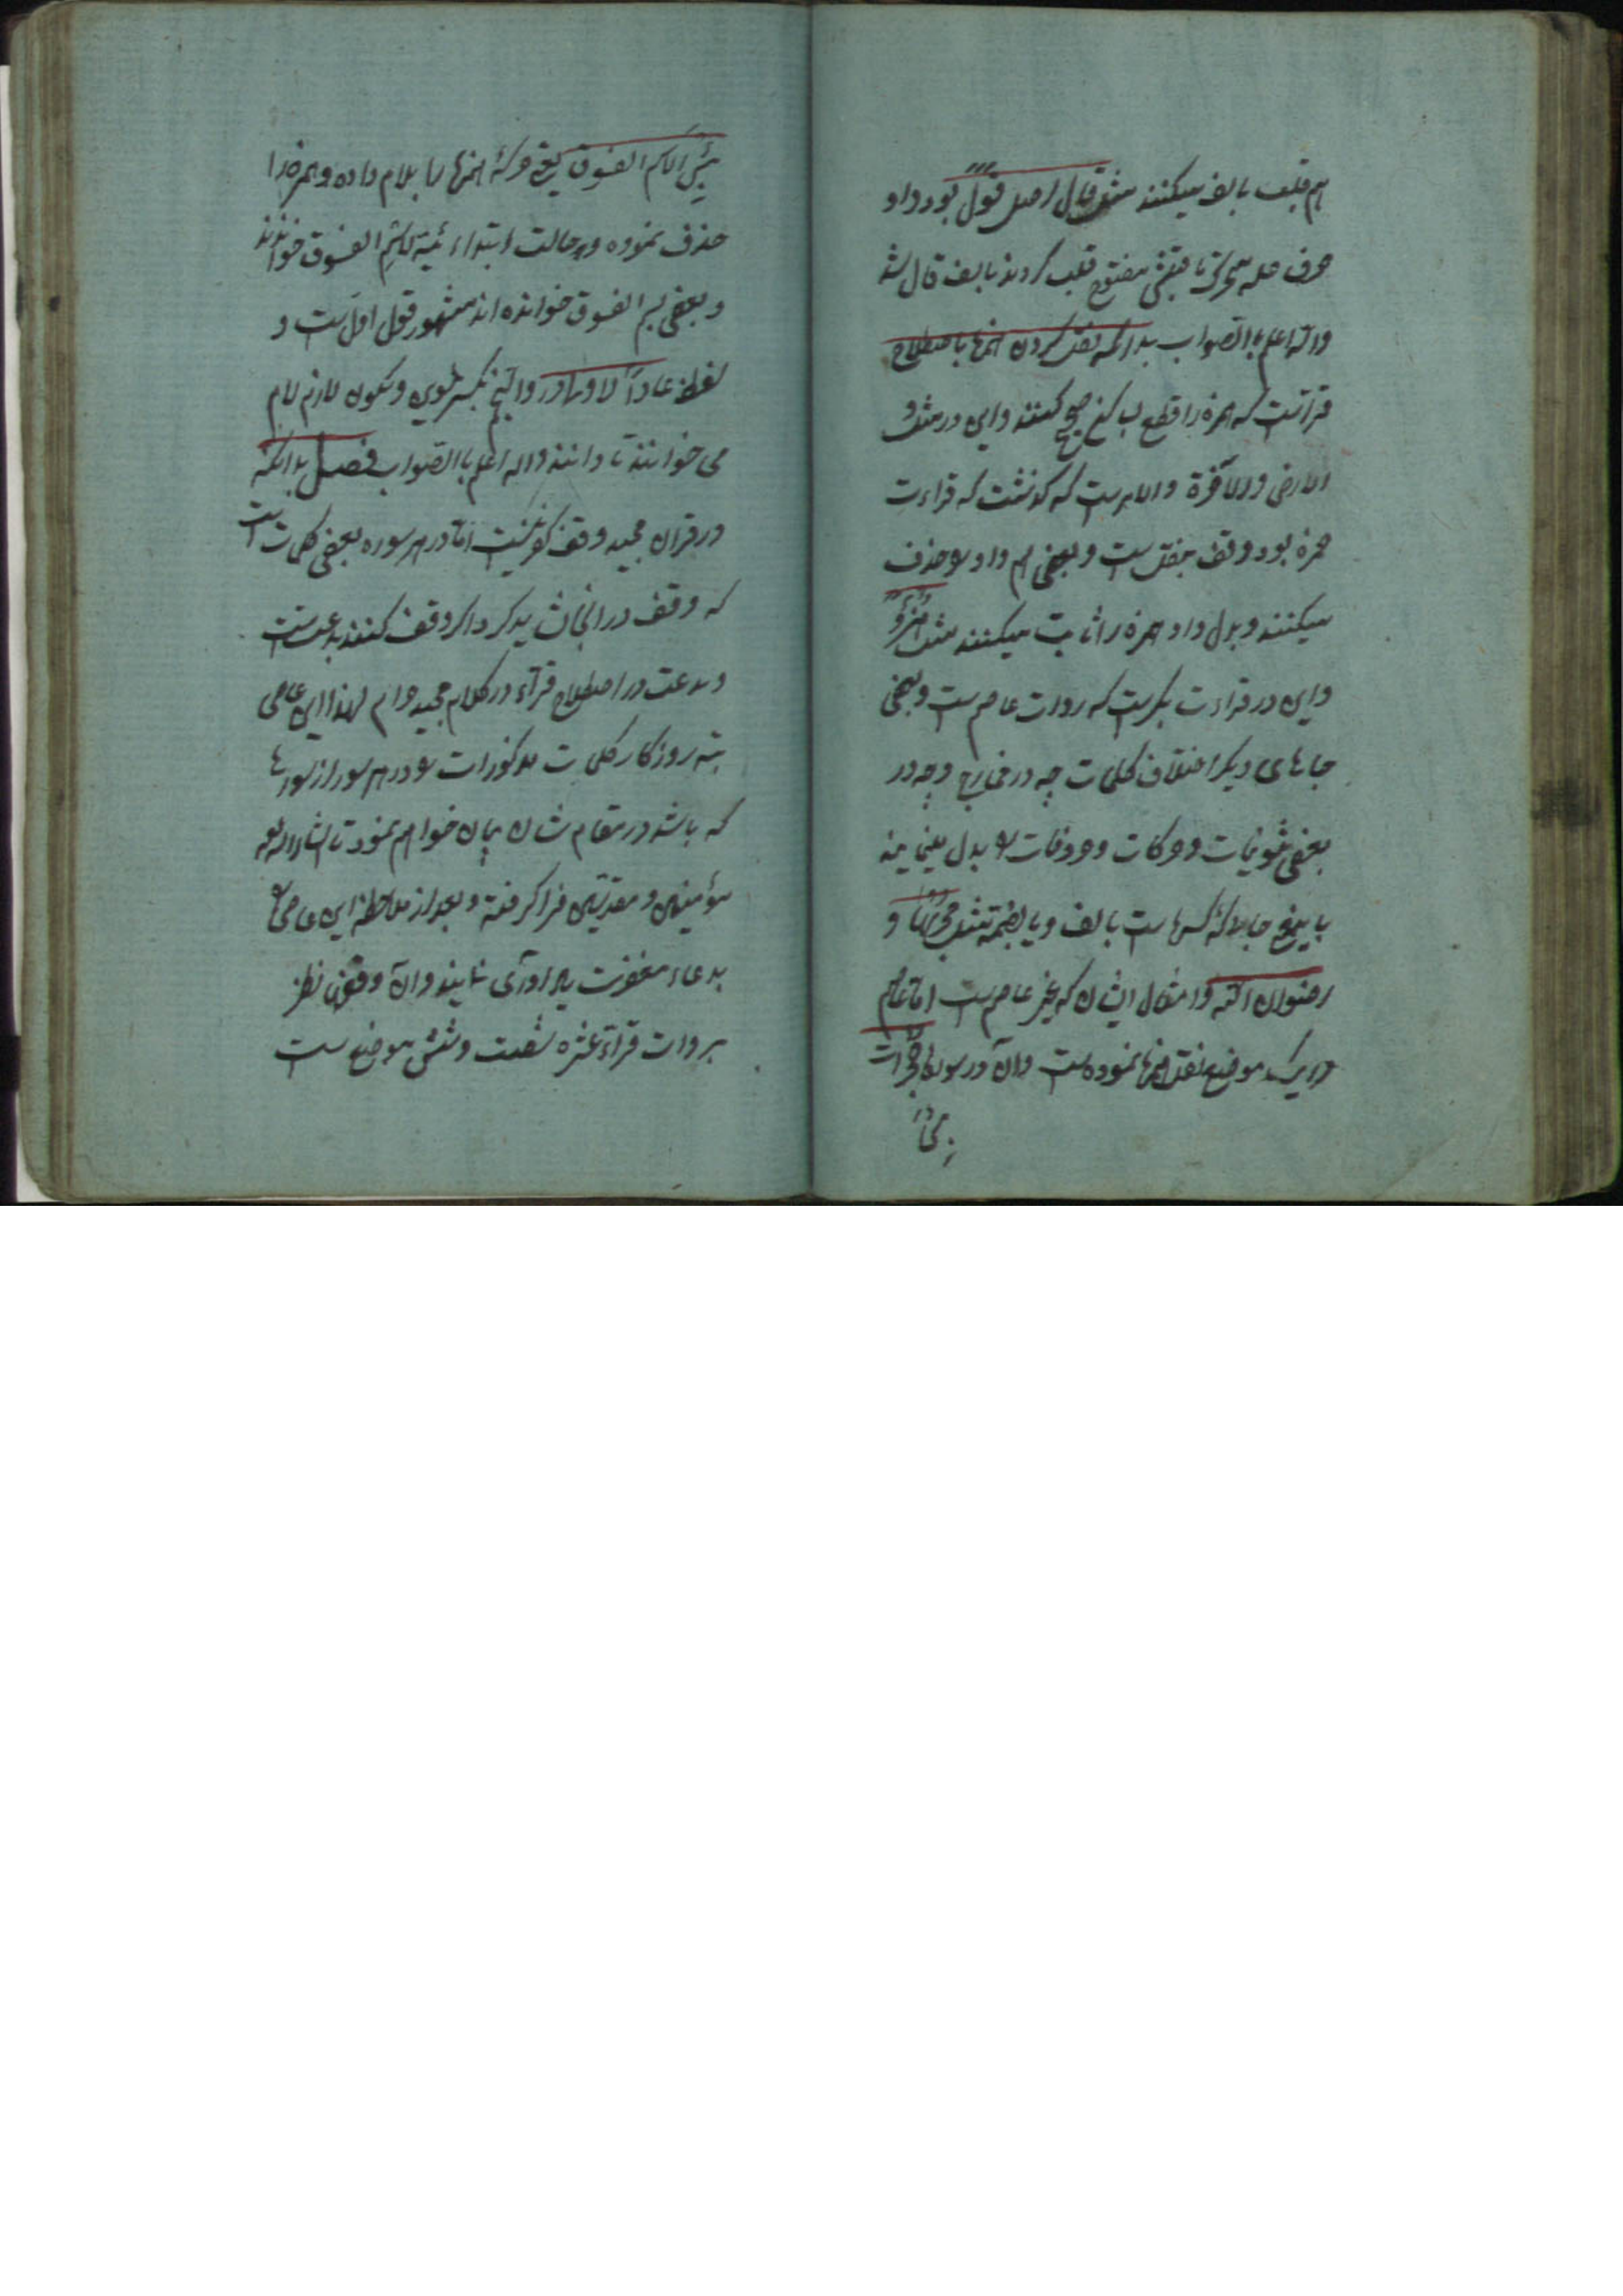 هم قلب بالف میکنند مثل قال اصل قول بود واو
حرف عله متحرک ماقبلش مفتوح قلب کردند بالف قال شد
والله اعلم باالصواب بدانکه نقل کردن همزها باصطلاح
قراتست که همزه را قطع کنند و این در مثل
الارض والآخرة والامرست که گذشت که قراءت
حمزه بود وقف بنقل ست و بعضی هم واو را حذف
میکنند و بدل واو همزه را ثابت میکنند مثل
و این در قراءت بکرست که روات عاصم ست و بعضی
جاهای دیگر اختلاف کلمات چه در مخارج و چه در
بعضی تنوینات و حرکات و حروفات را بدل مینمایند
باینمعنی جابلاکه کسرهاست بالف و یا بضمه مثل و
رضوان الله و امثال ایشان که بغیر عاصم ست اما عاصم
در یک موضع نقل همزها نموده ست و آن در سوره حجرات
بئس
بئس الاسم الفسوق یعنی حرکهٔ همزها را بلام داده و همزه را
حذف نموده و در حالت ابتداء الفسوق خوانند
و بعضی الفسوق خوانده اند مشهور قول اول ست و
لفظ عاداً الاولی بکسر تنوین و سکون لازم لام
می خوانند تا دانند والله اعلم باالصواب فصل بدانکه
در قران مجید وقف کفر نیست اما در هر سوره بعضی کلمات است
که وقف در انجا نشاید کرد اگر وقف کنند بدعت ست
و بدعت در اصطلاح قرآء در کلام مجید حرام لهذا این عاصی
تبه روزگار کلمات مذکورات را در هر سوره از سورها
که باشد در مقام شان بیان خواهم نمود تا انشاء الله
مؤمنین و مقدیین فرا گرفته و بعد از ملاحظه این عاصی را
بدعاء مغفرت یاد آوری نمایند و آن وقوف نظر
بروات قرآء عشره شصت و شش موضع ست